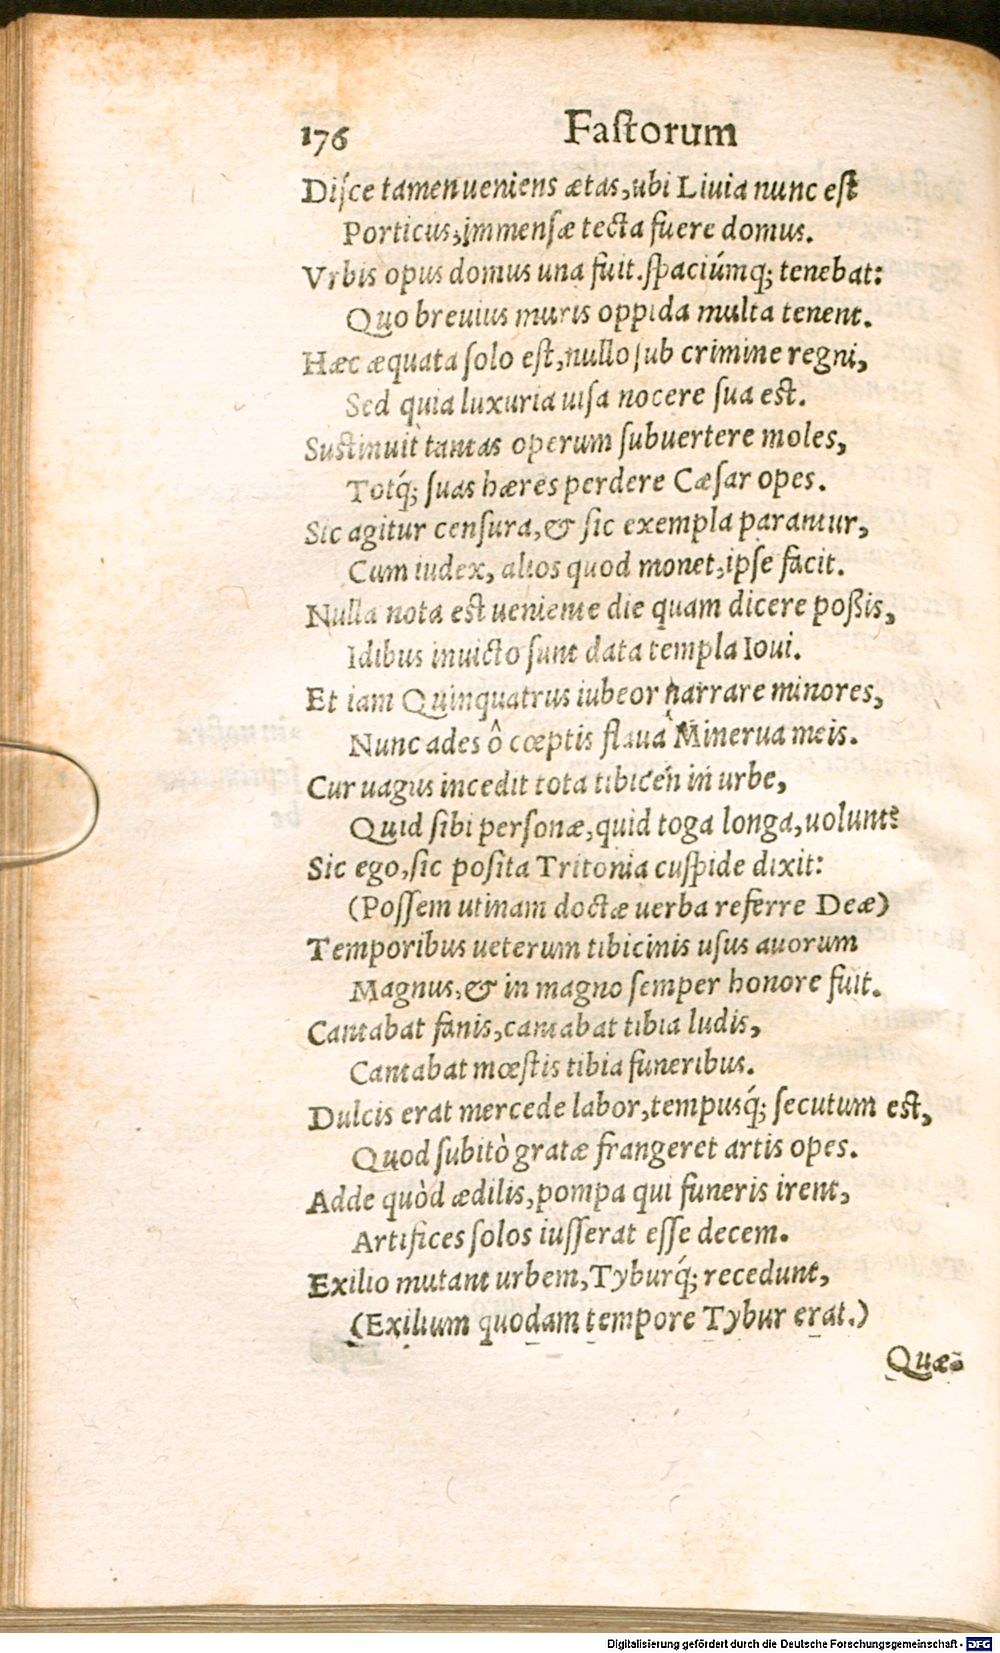 176 Fastorum
Disce tamen ueniens ætas, ubi Liuia nunc est
Porticus, immensæ tecta fuere domus.
Vrbis opus domus una fuit. spaciúmq; tenebat:
Quo breuius muris oppida multa tenent.
Hæc æquata solo est, nullo sub crimine regni,
Sed quia luxuria uisa nocere sua est.
Sustinuit tantas operum subuertere moles,
Totq́; suas hæres perdere Cæsar opes.
Sic agitur censura, & sic exempla parantur,
Cum iudex, alios quod monet, ipse facit.
Nulla nota est ueniente die quam dicere poßis,
Idibus inuicto sunt data templa Ioui.
Et iam Quinquatrus iubeor narrare minores,
Nunc ades ô cœptis flaua Minerua meis.
Cur uagus incedit tota tibicén in urbe,
Quid sibi personæ, quid toga longa, uolunt?
Sic ego, sic posita Tritonia cuspide dixit:
(Possem utinam doctæ uerba referre Deæ)
Temporibus ueterum tibicinis usus auorum
Magnus, & in magno semper honore fuit.
Cantabat fanis, cantabat tibia ludis,
Cantabat mœstis tibia funeribus.
Dulcis erat mercede labor, tempusq́; secutum est,
Quod subitò gratæ frangeret artis opes.
Adde quòd ædilis, pompa qui funeris irent,
Artifices solos iusserat esse decem.
Exilio mutant urbem, Tyburq́; recedunt,
(Exilium quodam tempore Tybur erat.)
Quæ-
Digitalisierung gefördert durch die Deutsche Forschungsgemeinschaft - DFG